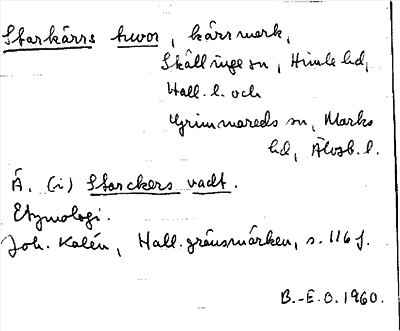 Starkärrs huvor, kärrmark,
Skällinge sn, Himle hd,
Hall. l. och
Grimmareds sn, Marks
hd, Älvsb. l.
Å. (i) Starckers vadt.
Etymologi.
Joh. Kalén, Hall. gränsmärken, s. 116 f.
B.-E.O. 1960.